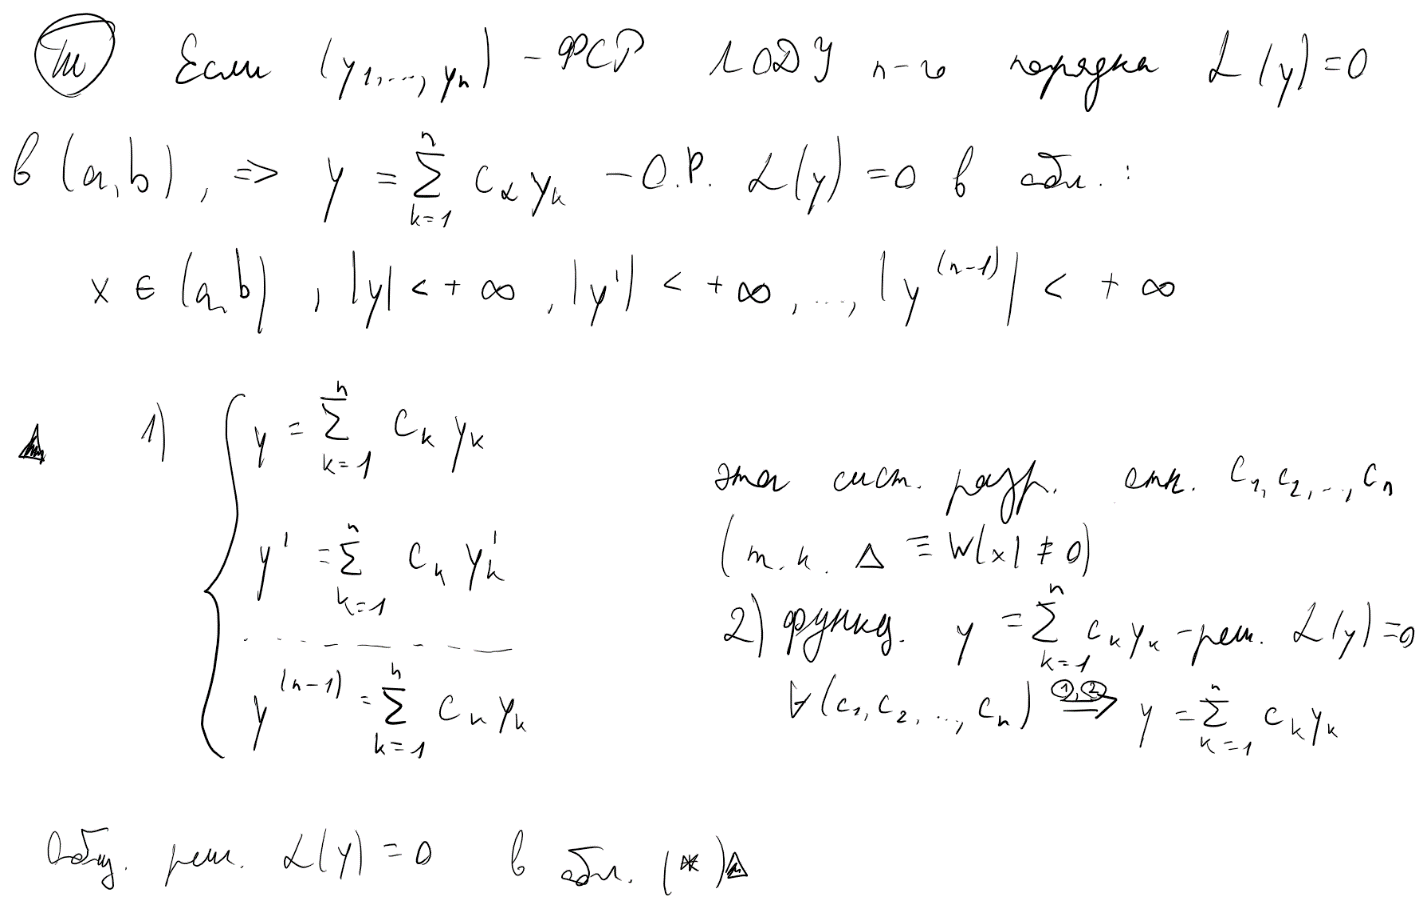 (Т) Если (y₁,...,yₙ) – ФСР ЛОДУ n-го порядка L(y)=0
в (a,b), => y = ∑_{k=1}^{n} C_α y_k – О.Р. L(y)=0 в обл. :
x ∈ (a,b), |y| < +∞, |y'| < +∞, ..., |y^{(n-1)}| < +∞
▲ 1) { y = ∑_{k=1}^{n} C_k y_k
y' = ∑_{k=1}^{n} C_k y_k'
- - - - - - - -
y^{(n-1)} = ∑_{k=1}^{n} C_k y_k
эта сист. разр. отн. C₁, C₂, ..., Cₙ
(т.к. Δ ≡ W(x) ≠ 0)
2) функц. y = ∑_{k=1}^{n} C_k y_k – реш. L(y)=0
∀(C₁, C₂, ..., Cₙ) =(①,②)=> y = ∑_{k=1}^{n} C_k y_k
Общ. реш. L(y)=0 в обл. (*) ▲